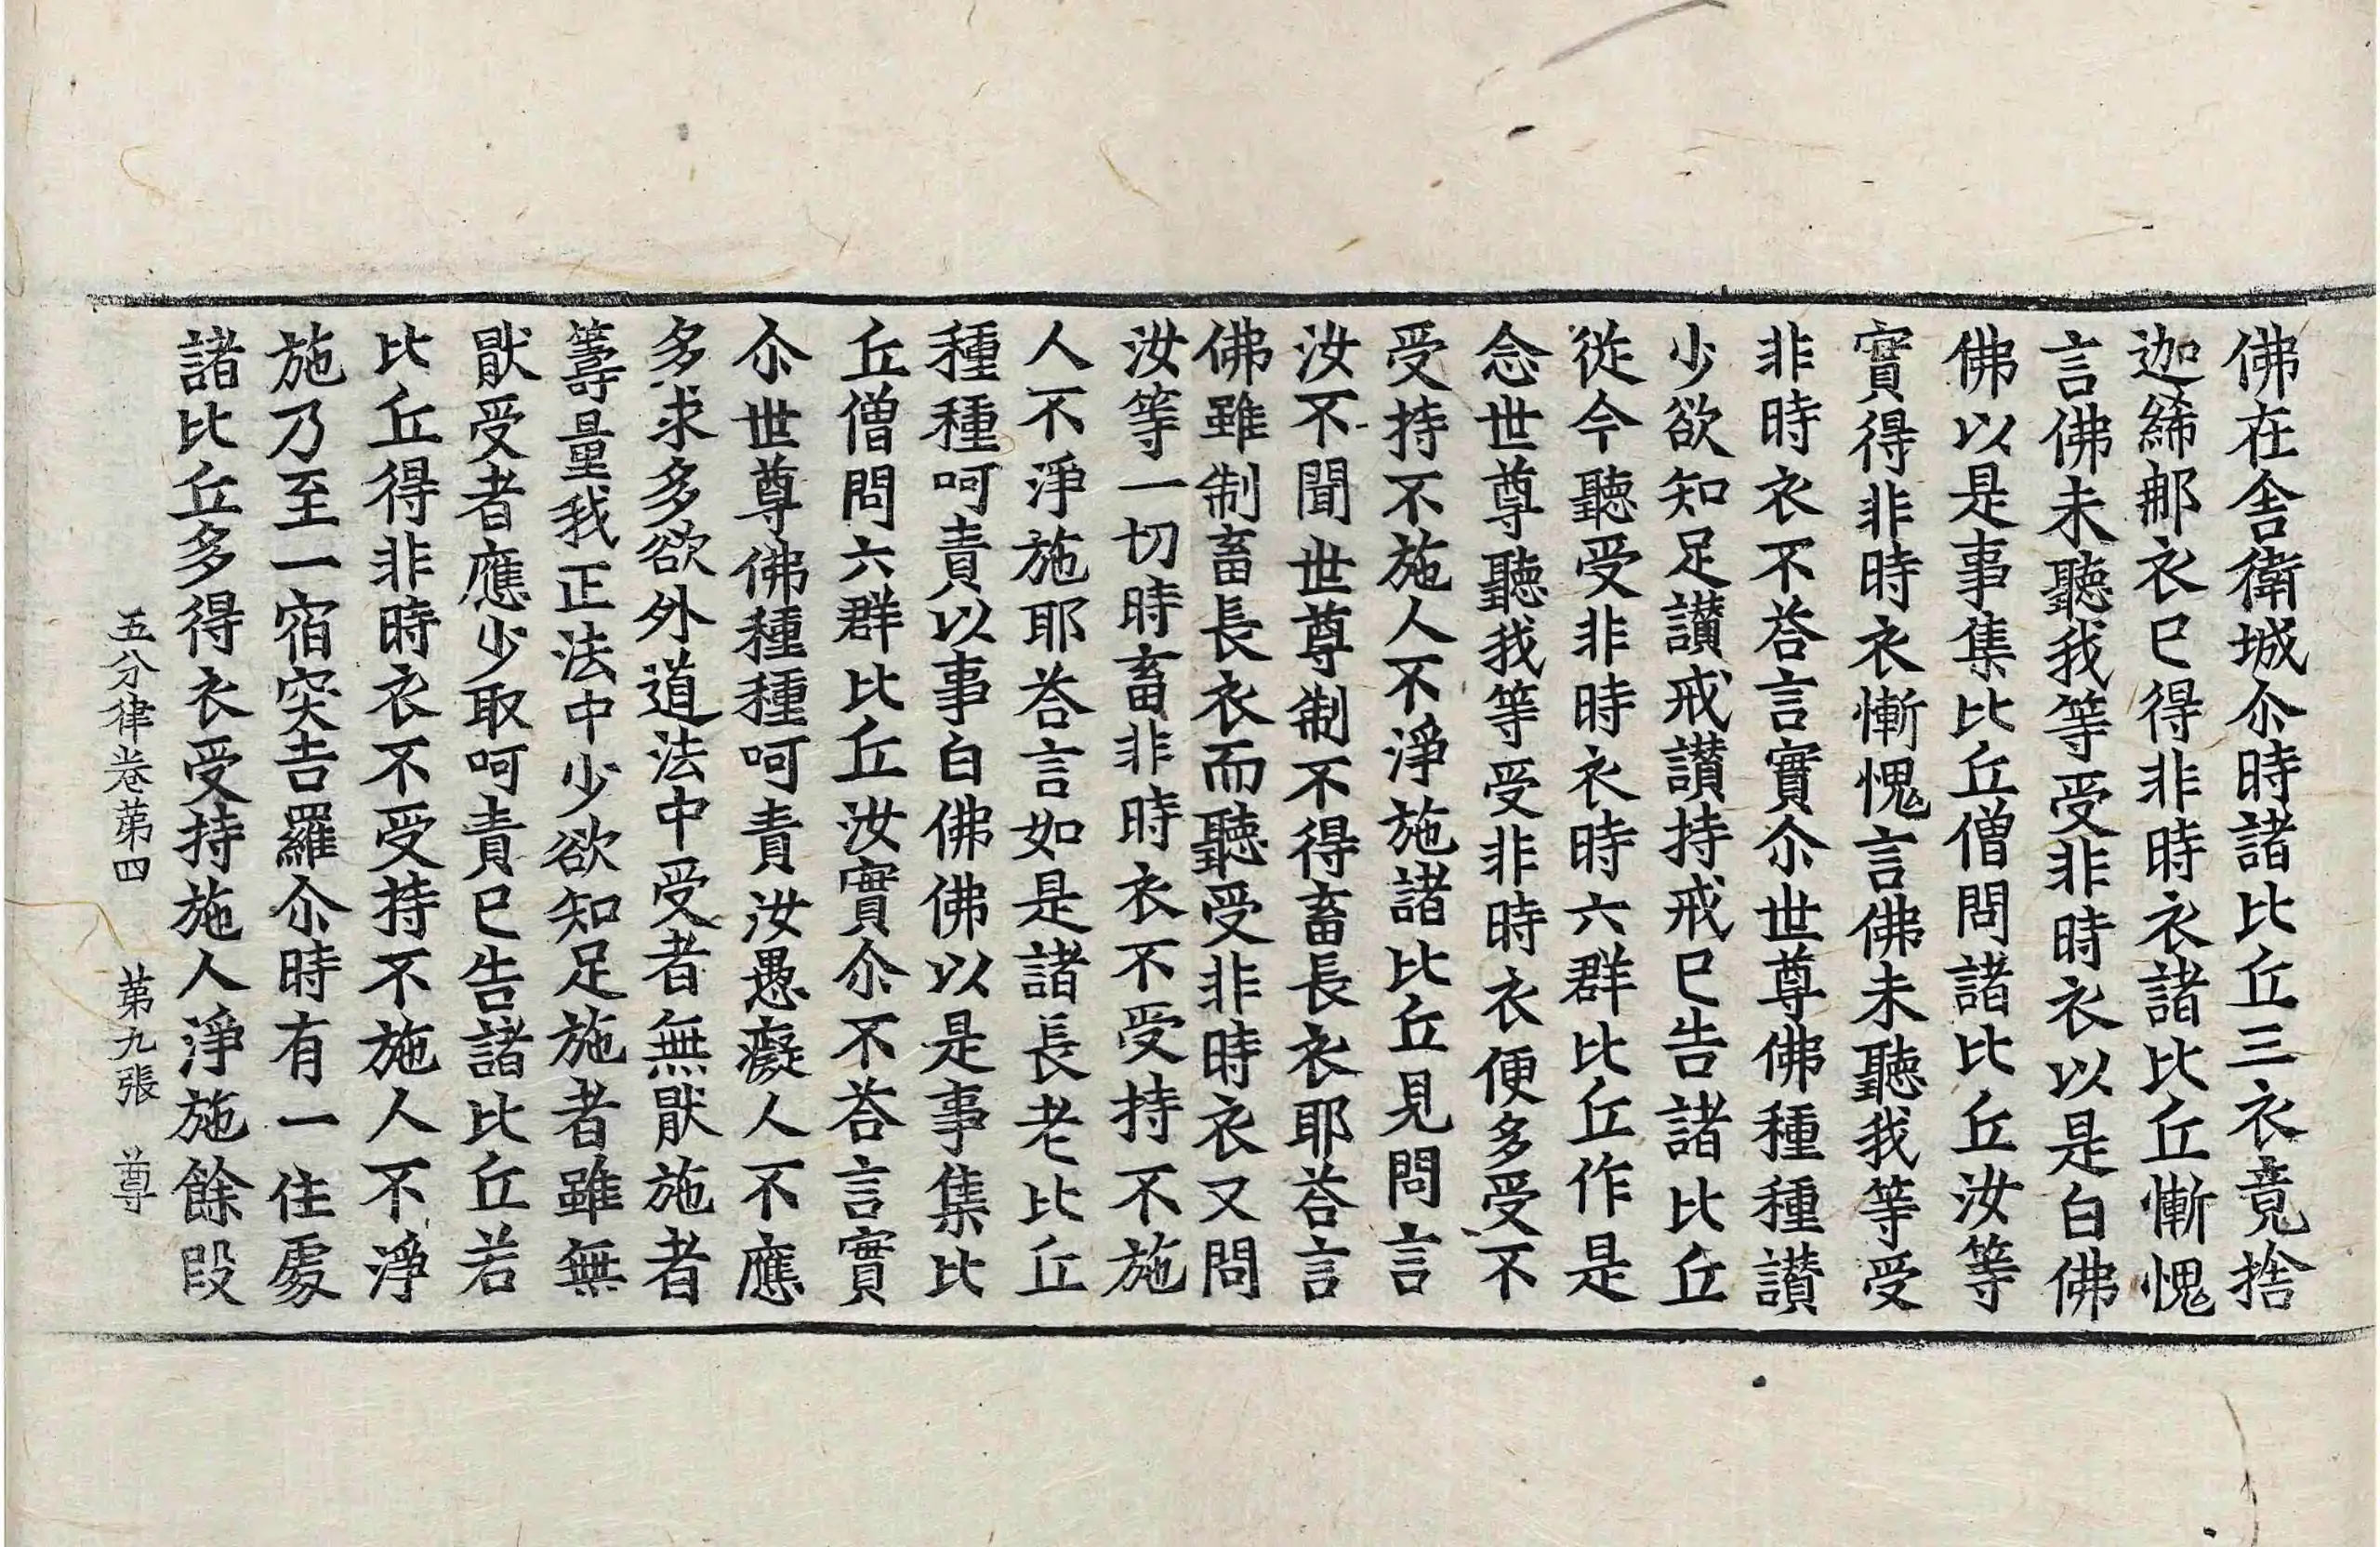 佛在舎衛城尒時諸比丘三衣竟捨
迦絺那衣巳得非時衣諸比丘慚愧
言佛未聽我等受非時衣以是白佛
佛以是事集比丘僧問諸比丘汝等
實得非時衣慚愧言佛未聽我等受
非時衣不荅言實尒世尊佛種種讃
少欲知足讃戒讃持戒巳告諸比丘
從今聽受非時衣時六群比丘作是
念世尊聽我等受非時衣便多受不
受持不施人不淨施諸比丘見問言
汝不聞世尊制不得畜長衣耶荅言
佛雖制畜長衣而聽受非時衣又問
汝等一切時畜非時衣不受持不施
人不淨施耶荅言如是諸長老比丘
種種呵責以事白佛佛以是事集比
丘僧問六群比丘汝實尒不荅言實
尒世尊佛種種呵責汝愚癡人不應
多求多欲外道法中受者無猒施者
籌量我正法中少欲知足施者雖無
猒受者應少取呵責巳告諸比丘若
比丘得非時衣不受持不施人不淨
施乃至一宿突吉羅尒時有一住處
諸比丘多得衣受持施人淨施餘段
五分律卷苐四 苐九張 尊